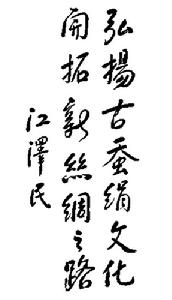 弘揚古蚕絹文化
開拓新絲綢之路
江澤民